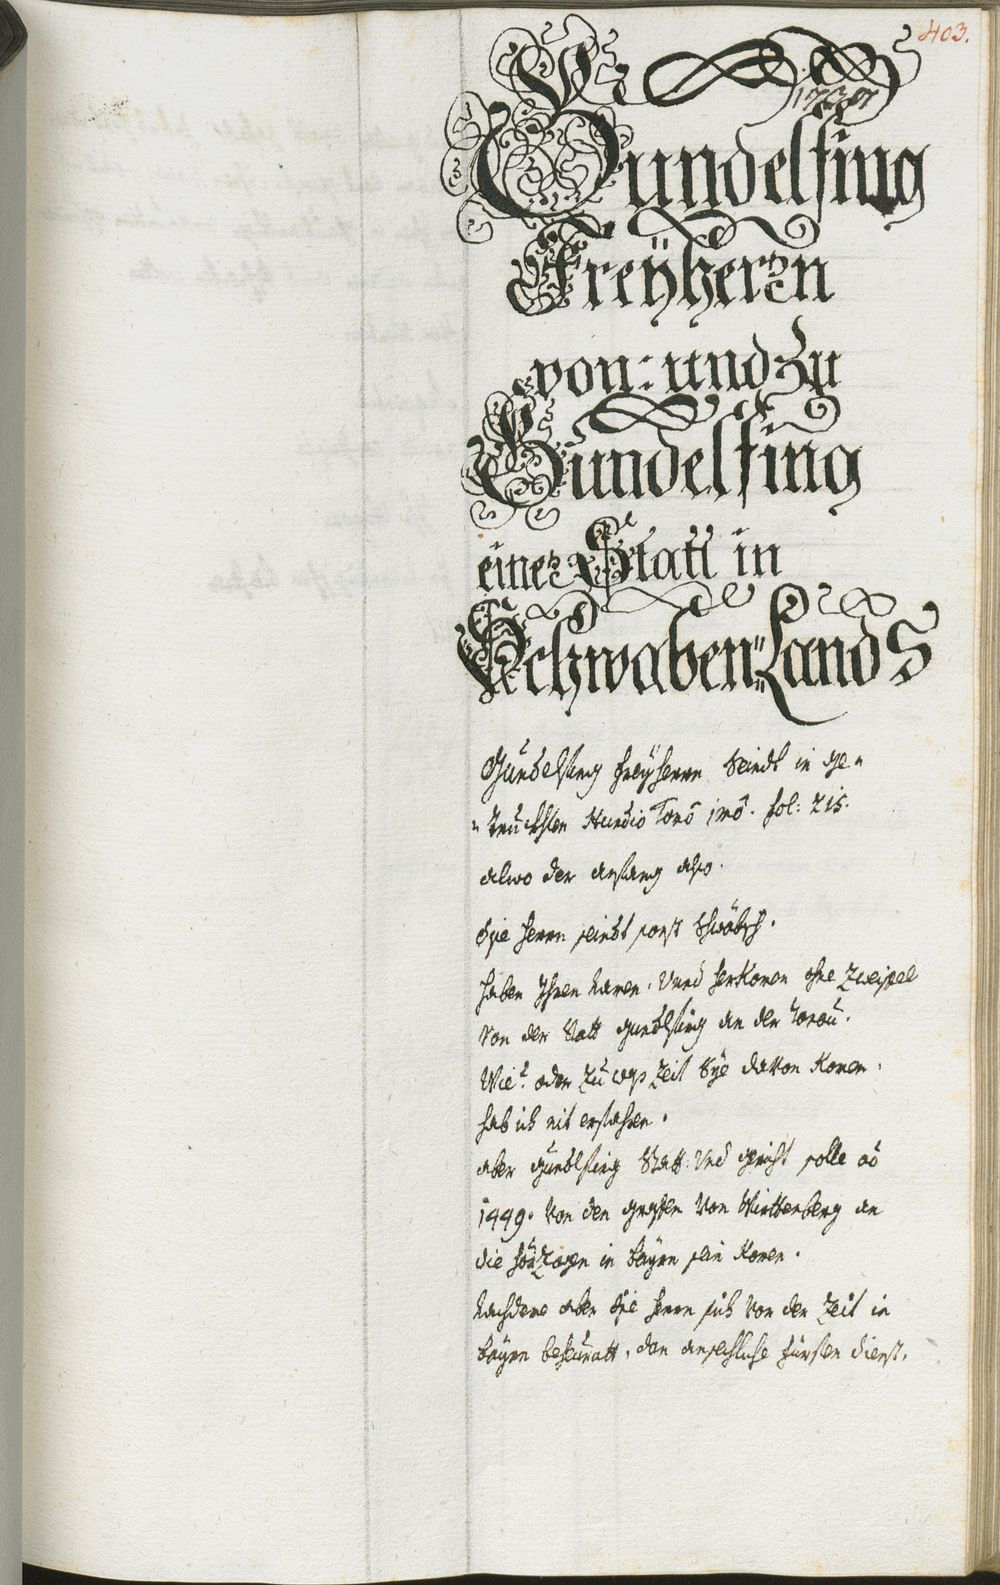 403.
Gundelfing
Freÿherrn
von: und Zu
Gundelfing
einer Statt in
Schwaben Lands
Gundelfing freÿherrn Seindt in ge-
-truckhten Hundio Tomo imo. fol: 215.
alwo der anfang also.
Die herrn seindt sonst Schwäbisch.
haben Ihren Namen, Vnnd herKomen ohne Zweifel
Von der Statt gundlfing an der Donau.
Wie? oder Zu was Zeit Sÿe davon Komen,
hab ich nit erfahren.
aber gundlfing Statt: Vnd gericht solle ao
1449. Von den grafen Von Wirttenberg an
die hörzogen in Bayrn sein Komen.
Nachdeme aber die herrn sich Vor der Zeit in
Bayrn beheuratt, dan ansechliche fürsten dienst,